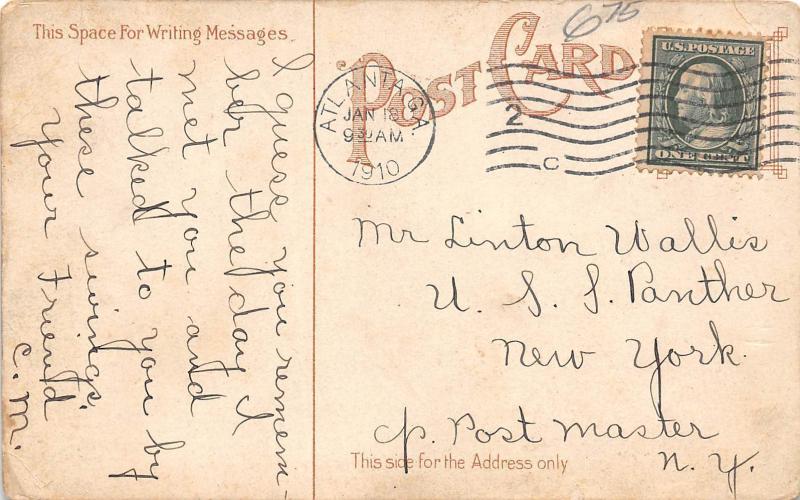 This Space For Writing Messages.
POST CARD
675
U.S. POSTAGE
ONE CENT
ATLANTA, GA.
JAN 18
9 AM
1910
2
C
I guess you remem-
ber the day I
met you and
talked to you by
these swings.
Your Friend
C. M.
Mr Linton Wallis
U. S. S. Panther
New York.
c/o. Post Master
N. Y.
This side for the Address only